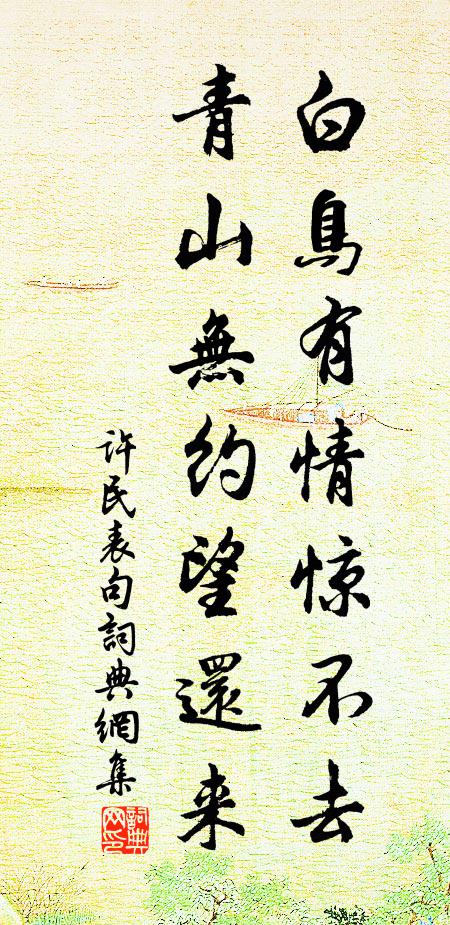 白鳥有情惊不去
青山無約望還来
许民表句詞典網集
詞典
网印